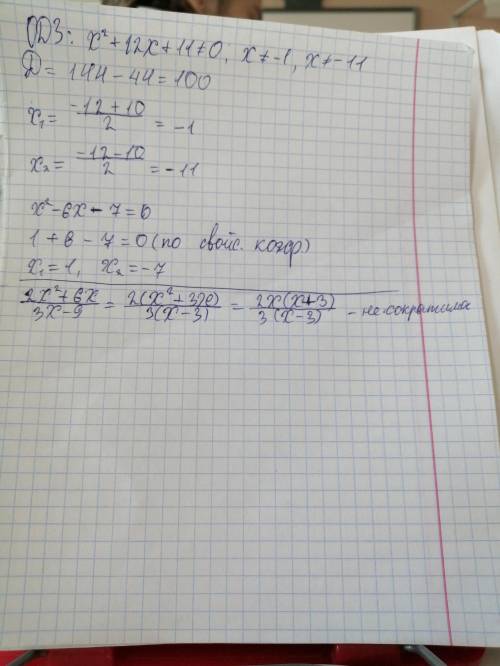 ОДЗ: x² + 12x + 11 ≠ 0; x ≠ -1, x ≠ -11
D = 144 - 44 = 100
x₁ = (-12 + 10)/2 = -1
x₂ = (-12 - 10)/2 = -11
x² - 6x - 7 = 0
1 + 6 - 7 = 0 (по свойс. коэф)
x₁ = 1, x₂ = -7
(2x² + 6x)/(3x - 9) = 2(x² + 3x)/3(x - 3) = 2x(x + 3)/3(x - 3) - не сократилась